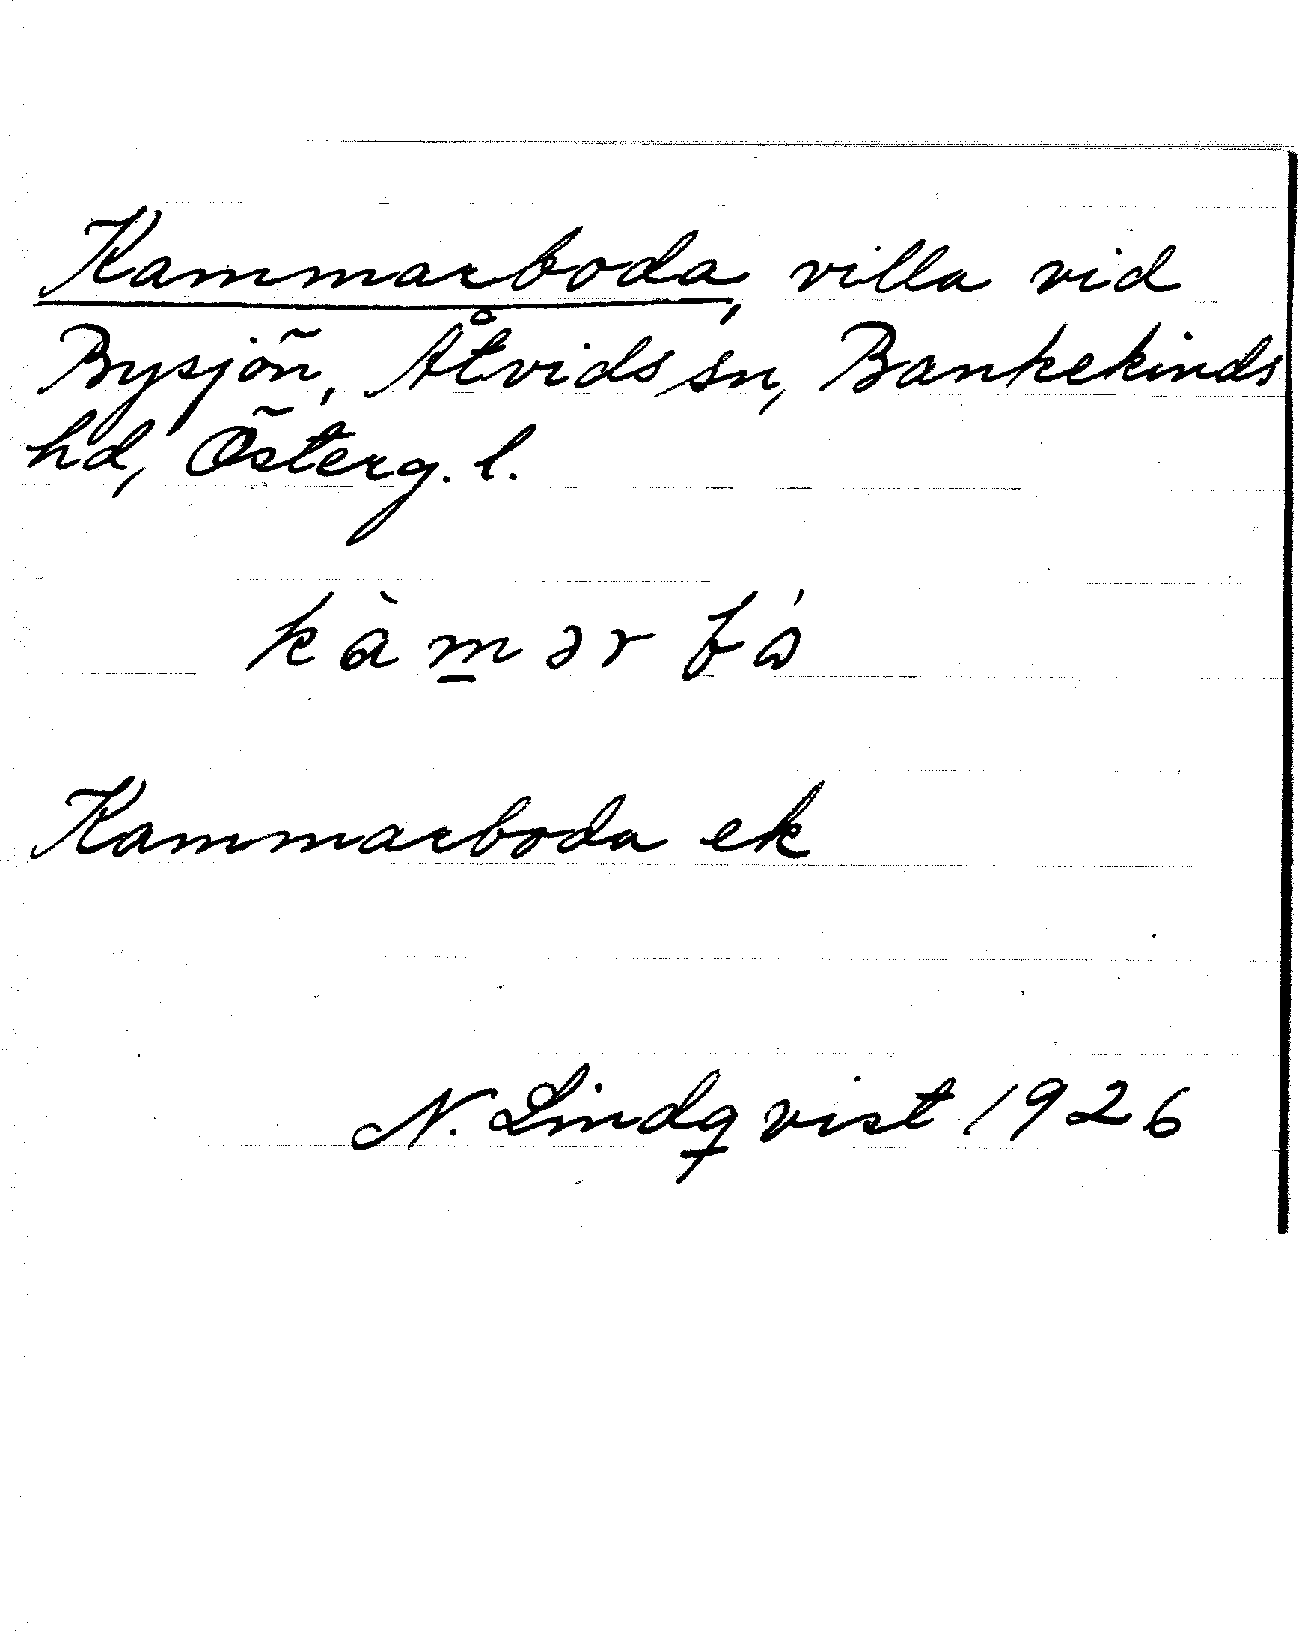 Kammarboda, villa vid
Bysjön, Åtvids sn, Bankekinds
hd, Österg. l.
kàmər bó
Kammarboda ek
N. Lindqvist 1926